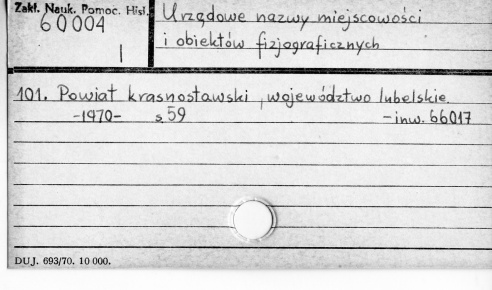 Zakł. Nauk. Pomoc. Hist.
60004
I
Urzędowe nazwy miejscowości
i obiektów fizjograficznych
101. Powiat krasnostawski, województwo lubelskie.
-1970- s 59 -inw. 66017
DUJ. 693/70. 10 000.